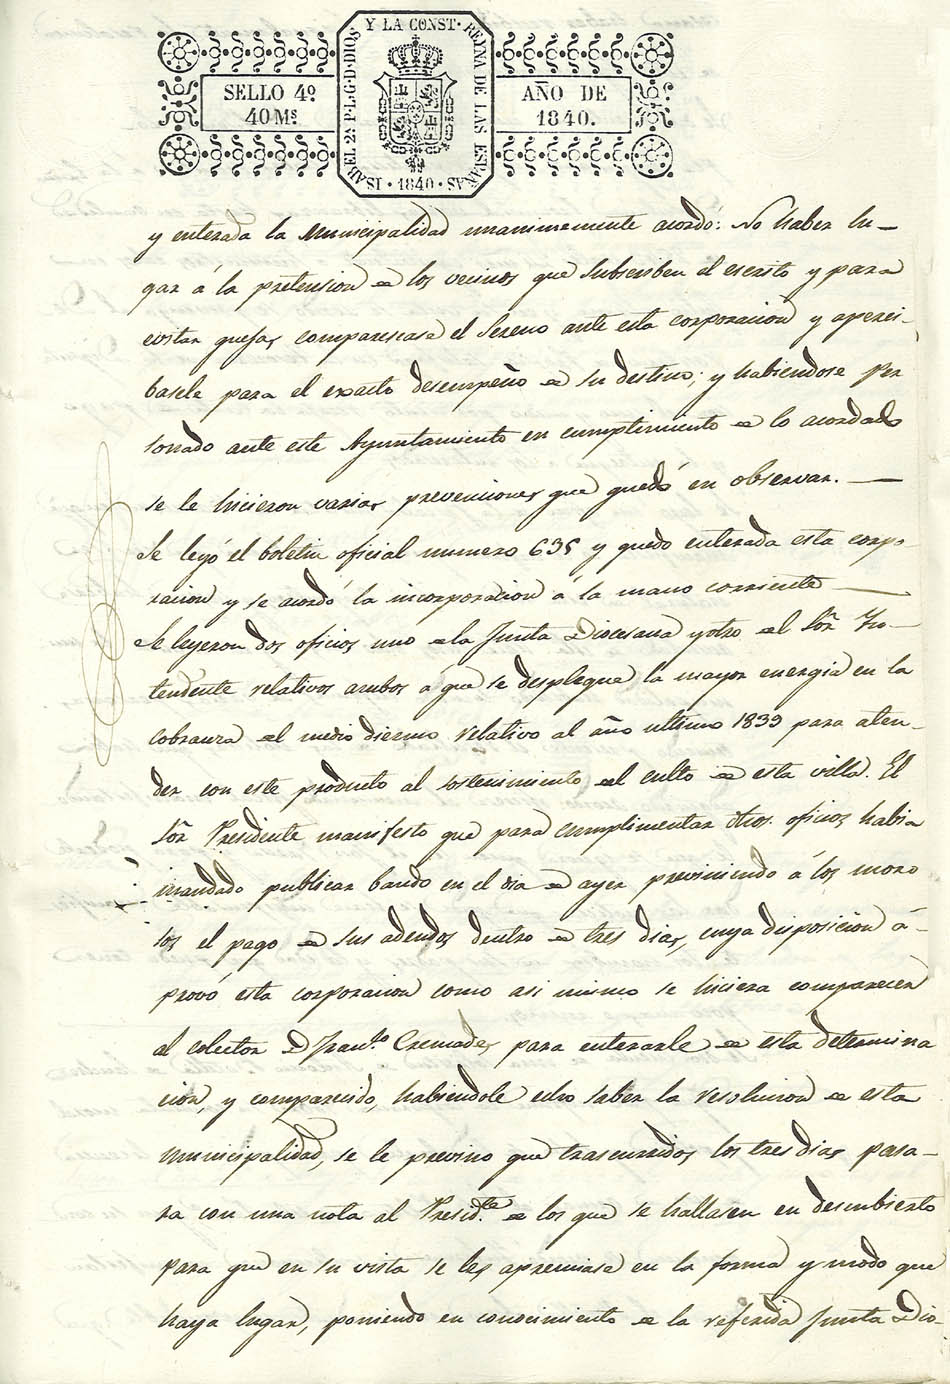 ISABEL 2ª P.L.G.D.DIOS Y LA CONST. REYNA DE LAS ESPAÑAS
SELLO 4º
40 Mˢ
AÑO DE
1840.
· 1840 ·
y enterada la Municipalidad unanimemente acordó: No haber lu-
gar á la pretension de los vecinos que subscriben el escrito y para
evitar quejas comparescase el Sereno ante esta corporacion y aperci-
basele para el exacto desempeño de su destino; y habiendose per
sonado ante este Ayuntamiento en cumplimiento de lo acordado
se le hicieron varias prevenciones que quedó en observar. —
Se leyó el boletin oficial numero 635 y quedo enterada esta corpo-
racion y se acordó la incorporacion á la mano corriente —
Se leyeron dos oficios uno de la Junta Diocesana y otro del Sõr In-
tendente relativos ambos á que se desplegue la mayor energia en la
cobranza del medio diezmo relativo al año ultimo 1839 para aten-
der con este producto al sostenimiento del culto de esta villa. El
Sõr Presidente manifesto que para cumplimentar dhos. oficios habia
mandado publicar bando en el dia de ayer previniendo á los moro
sos el pago de sus adeudos dentro de tres dias, cuya disposicion á-
provó esta corporacion como asi mismo se hiciera comparecer
al colector D Franᶜᵒ Cremades para enterarle de esta determina
cion, y comparecido, habiendole echo saber la resolucion de esta
municipalidad, se le previno que trascurridos los tres dias pasa-
ra con una nota al Presidᵗᵉ de los que se hallasen en descubierto
para que en su vista se les apremiase en la forma y modo que
haya lugar, poniendo en conocimiento de la referida Junta Dio-